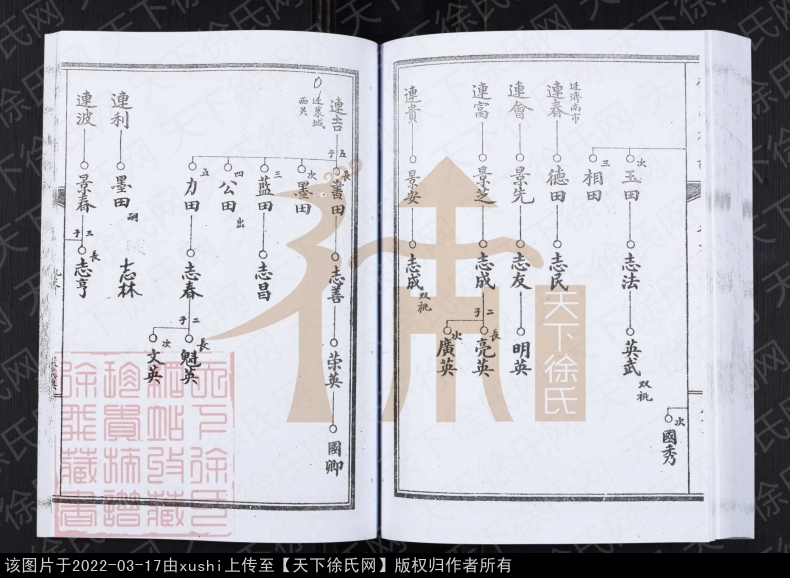 次
玉田
志法
英武
双祧
次
國秀
三
相田
迁濟南市
連春
德田
志民
連會
景先
志友
明英
連富
景芝
志成
二子
長
亮英
次
廣英
連貴
景安
志成
双祧
連吉
迁萊城
西关
五子
長
書田
志善
荣英
國卿
次
墨田
三
蓝田
志昌
四
公田
出
五
力田
志春
二子
長
魁英
次
文英
連利
墨田
嗣
志林
連波
景春
三子
長
志亨
天下徐氏
天下徐氏网
该图片于2022-03-17由xushi上传至【天下徐氏网】版权归作者所有